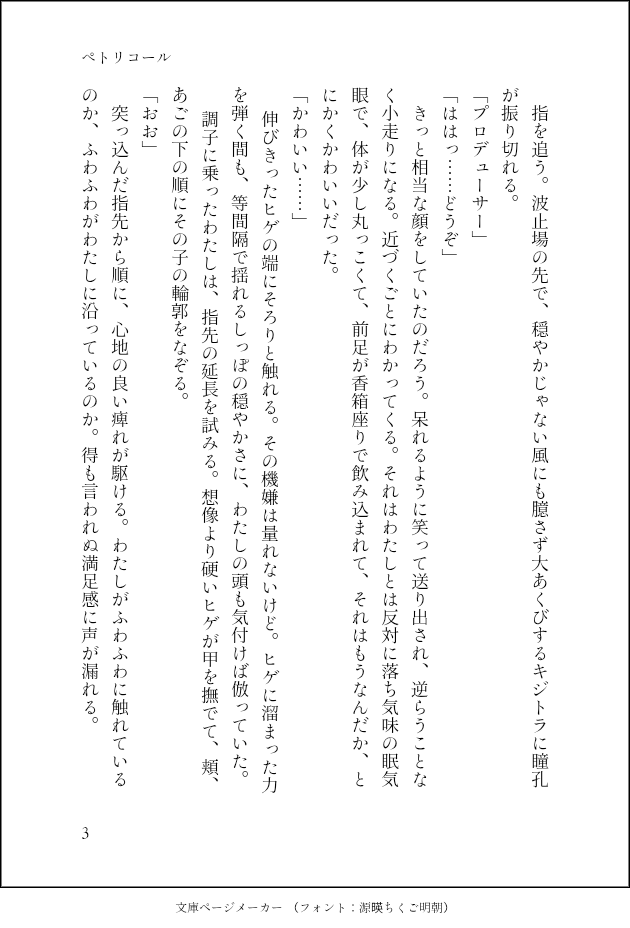 ペトリコール
　指を追う。波止場の先で、穏やかじゃない風にも臆さず大あくびするキジトラに瞳孔
が振り切れる。
「プロデューサー」
「ははっ……どうぞ」
　きっと相当な顔をしていたのだろう。呆れるように笑って送り出され、逆らうことな
く小走りになる。近づくごとにわかってくる。それはわたしとは反対に落ち気味の眠気
眼で、体が少し丸っこくて、前足が香箱座りで飲み込まれて、それはもうなんだか、と
にかくかわいいだった。
「かわいい……」
　伸びきったヒゲの端にそろりと触れる。その機嫌は量れないけど。ヒゲに溜まった力
を弾く間も、等間隔で揺れるしっぽの穏やかさに、わたしの頭も気付けば倣っていた。
　調子に乗ったわたしは、指先の延長を試みる。想像より硬いヒゲが甲を撫でて、頬、
あごの下の順にその子の輪郭をなぞる。
「おお」
　突っ込んだ指先から順に、心地の良い痺れが駆ける。わたしがふわふわに触れている
のか、ふわふわがわたしに沿っているのか。得も言われぬ満足感に声が漏れる。
3
文庫ページメーカー （フォント：源暎ちくご明朝）